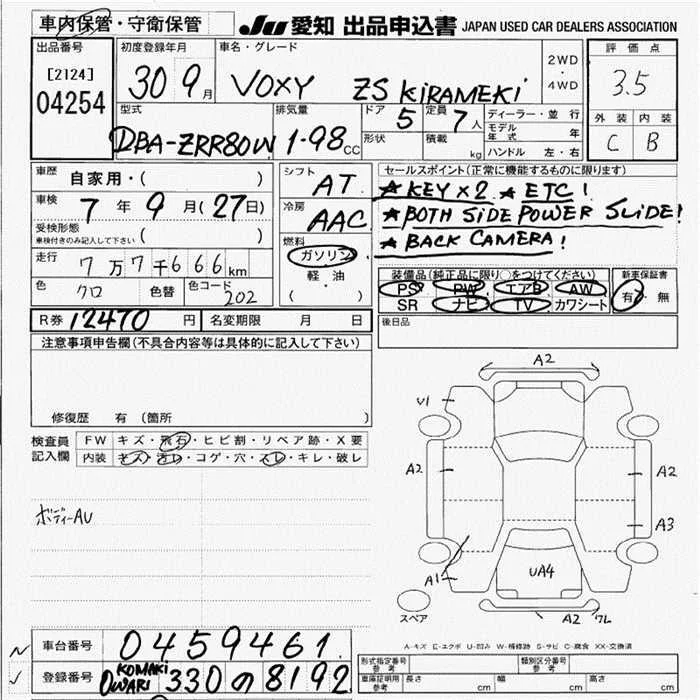 車内保管・守衛保管
JU 愛知 出品申込書 JAPAN USED CAR DEALERS ASSOCIATION
出品番号
[2124]
04254
初度登録年月
30 9月
車名・グレード
VOXY ZS KiRAMEKi
2WD
・
4WD
評価点
3.5
外装 内装
C B
型式
DBA-ZRR80W
排気量
1.98 CC
ドア
5
定員
7人
形状
積載
kg
ディーラー・並行
モデル年式 年
ハンドル 左・右
車歴
自家用・( )
車検
7年 9月(27日)
受検形態
車検付きのみ記入して下さい ( )
走行
7万7千666km
色
クロ
色替
色コード
202
シフト
AT
冷房
AAC
燃料
ガソリン
軽・油
( )
セールスポイント(正常に機能するものに限ります)
★ KEY×2 ★ ETC!
★ BOTH SiDE POWER SLiDE!
★ BACK CAMERA!
装備品(純正品に限り○をつけてください)
PS PW エアB AW
SR ナビ TV カワシート
新車保証書
有・無
R券 12470円
名変期限 月 日
後日品
注意事項申告欄(不具合内容等は具体的に記入して下さい)
修復歴 有 (箇所 )
検査員
記入欄
FW キズ・飛石・ヒビ割・リペア跡・X要
内装 キズ・汚レ・コゲ・穴・スレ・キレ・破レ
ボディーAU
A2
V1
A2
A2
A3
A1
UA4
A2 ワレ
スペア
A-キズ E-エクボ U-凹み W-補修跡 S-サビ C-腐食 XX-交換済
車台番号
0459461
登録番号
KOMAKi
OWARi 330 の 8192
形式指定番号
参考
類別区分番号
参考
車庫証明用
参考
長さ cm 幅 cm 高さ cm